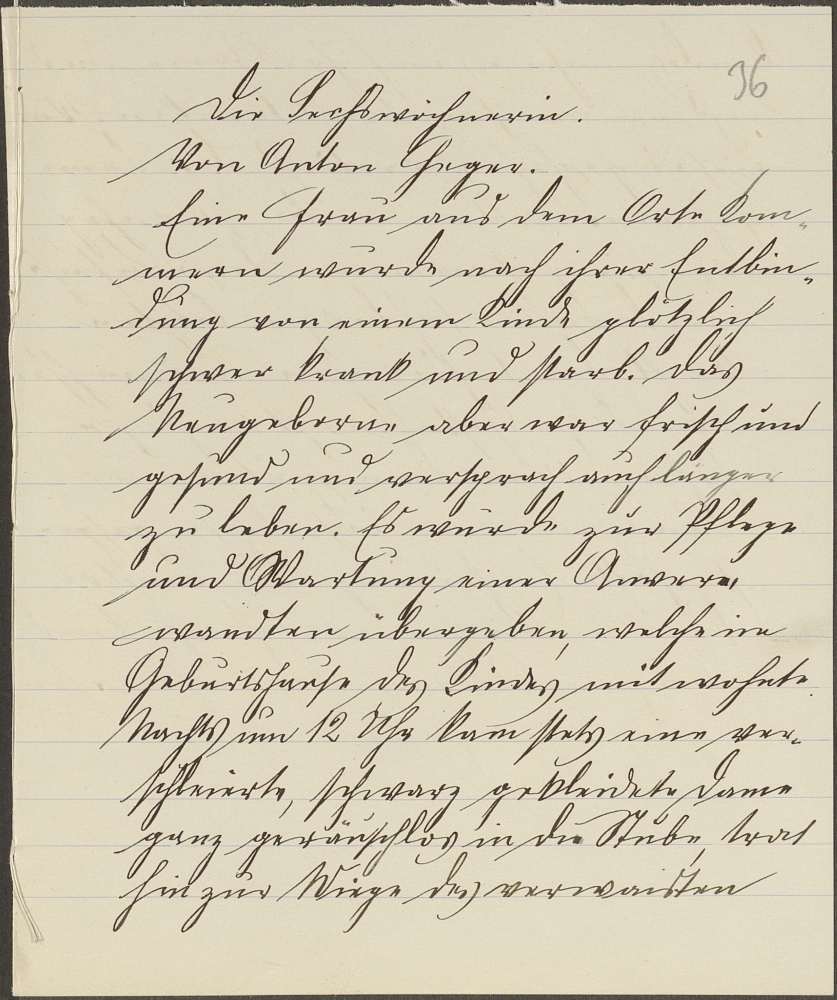 36
Die Sechswöchnerin.
Von Anton Heger.
Eine Frau aus dem Orte Kom-
mern wurde nach ihrer Entbin-
dung von einem Kinde plötzlich
schwer krank und starb. Das
Neugeborne aber war frisch und
gesund und versprach auch länger
zu leben. Es wurde zur Pflege
und Wartung einer Anver-
wandten übergeben, welche im
Geburtshause des Kindes mit wohnte.
Nachts um 12 Uhr kam stets eine ver-
schleierte, schwarz gekleidete Dame
ganz geräuschlos in die Stube, trat
hin zur Wiege des verwaisten